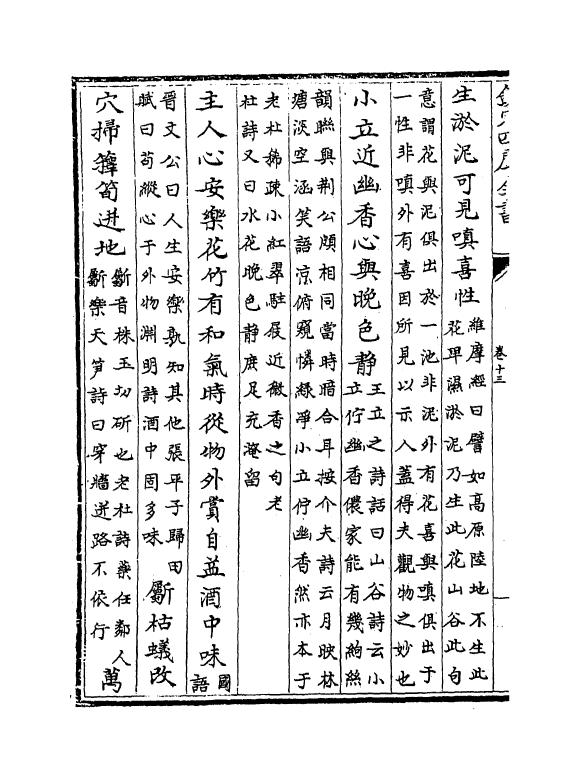 欽定四庫全書
卷十三
生淤泥可見嗔喜性
維摩經曰譬如高原陸地不生此
花卑濕淤泥乃生此花山谷此句
意謂花與泥俱出於一池非泥外有花喜與嗔俱出于
一性非嗔外有喜因所見以示人蓋得夫觀物之妙也
小立近幽香心與晚色靜
王立之詩話曰山谷詩云小
立佇幽香儂家能有幾絇絲
韻聯與荆公頗相同當時暗合耳按介夫詩云月映林
塘淡空涵笑語涼俯窺憐緑淨小立佇幽香然亦本于
老杜稀疎小紅翠駐屐近微香之句老
杜詩又曰水花晚色静庶足充淹留
主人心安樂花竹有和氣時從物外賞自益酒中味
國
語
晉文公曰人生安樂孰知其他張平子歸田
賦曰茍縱心于外物淵明詩酒中固多味
斸枯蟻改
穴掃籜筍迸地
斸音株玉切斫也老杜詩藥任鄰人
斸樂天笋詩曰穿牆迸路不依行
萬